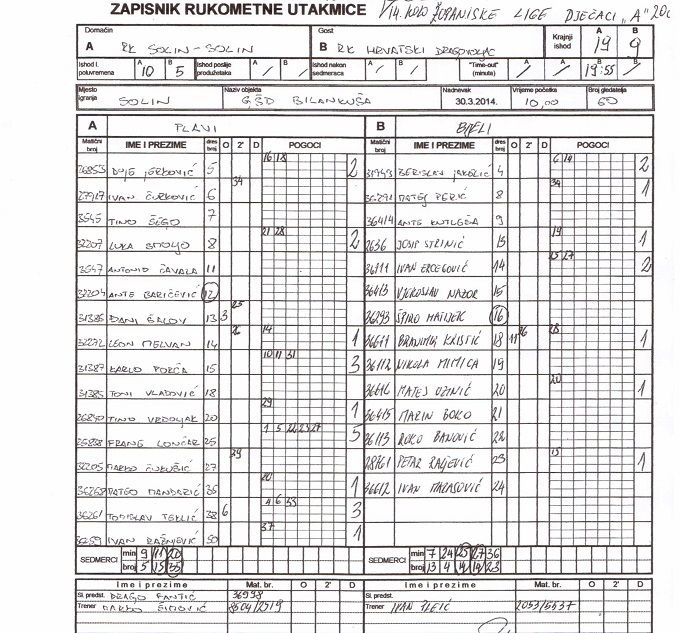 ZAPISNIK RUKOMETNE UTAKMICE 1/14. KOLO ŽUPANIJSKE LIGE DJEČACI "A" 20
Domaćin Gost Krajnji ishod A B
A RK SOLIN-SOLIN B RK HRVATSKI DRAGOVOLJAC 19 9
Ishod I. poluvremena A 10 B 5 Ishod poslije produžetaka A / B / Ishod nakon sedmeraca A / B / "Time-out" (minuta) A / B 19:55 B
Mjesto igranja Naziv objekta Nadnevak Vrijeme početka Broj gledatelja
SOLIN GŠD BILANKUŠA 30.3.2014. 10,00 60
A PLAVI B BIJELI
Matični broj IME I PREZIME dres broj O 2' D POGOCI Matični broj IME I PREZIME dres broj O 2' D POGOCI
DUJE 5 16 18 2 BERISLAV 4 6 19 2
IVAN ĆURKOVIĆ 6 34 MATEJ PERIĆ 8 34 1
3645 TINO ŠEGO 7 36414 ANTE KUTLEŠA 9
32207 LUKA 8 21 28 2 2636 JOSIP STRINIĆ 13 19 1
3647 ANTONIO ČAVALA 11 IVAN ERCEGOVIĆ 14 15 27 2
32204 ANTE BARIČEVIĆ 12 36413 VJEROSLAV NAZOR 15
31386 DANI 13 3 25 36293 ŠPIRO MATIJEK 16
LEON MELVAN 14 26 14 1 36611 BRANIMIR KRISTIĆ 18 11 26 28 1
31387 KARLO 15 10 11 31 3 36112 NIKOLA MIMICA 19
31385 TONI VLADOVIĆ 18 36616 MATEJ UZINIĆ 20 20 1
26840 TINO VRDOLJAK 20 29 1 36415 MARIN BOKO 21
FRANE LONČAR 25 1 5 22 23 27 5 36113 ROKO BANOVIĆ 22
32205 MARKO 27 29 28761 PETAR RALJEVIĆ 23 13 1
36268 MATEO MANDARIĆ 36 20 1 36612 IVAN MARASOVIĆ 24
36261 TOMISLAV TEKLIĆ 38 6 4 6 33 3
IVAN RAŽNJEVIĆ 50 37 1
SEDMERCI min 9 11 20 SEDMERCI min 7 24 25 27 36
broj 5 15 35 broj 13 4 14 14 23
Ime i prezime Mat. br. O 2' D Ime i prezime Mat. br. O 2' D
Sl. predst. DRAGO 36998 Sl. predst.
Trener MARKO ŠIMOVIĆ 8504/2519 Trener IVAN 2053/5537